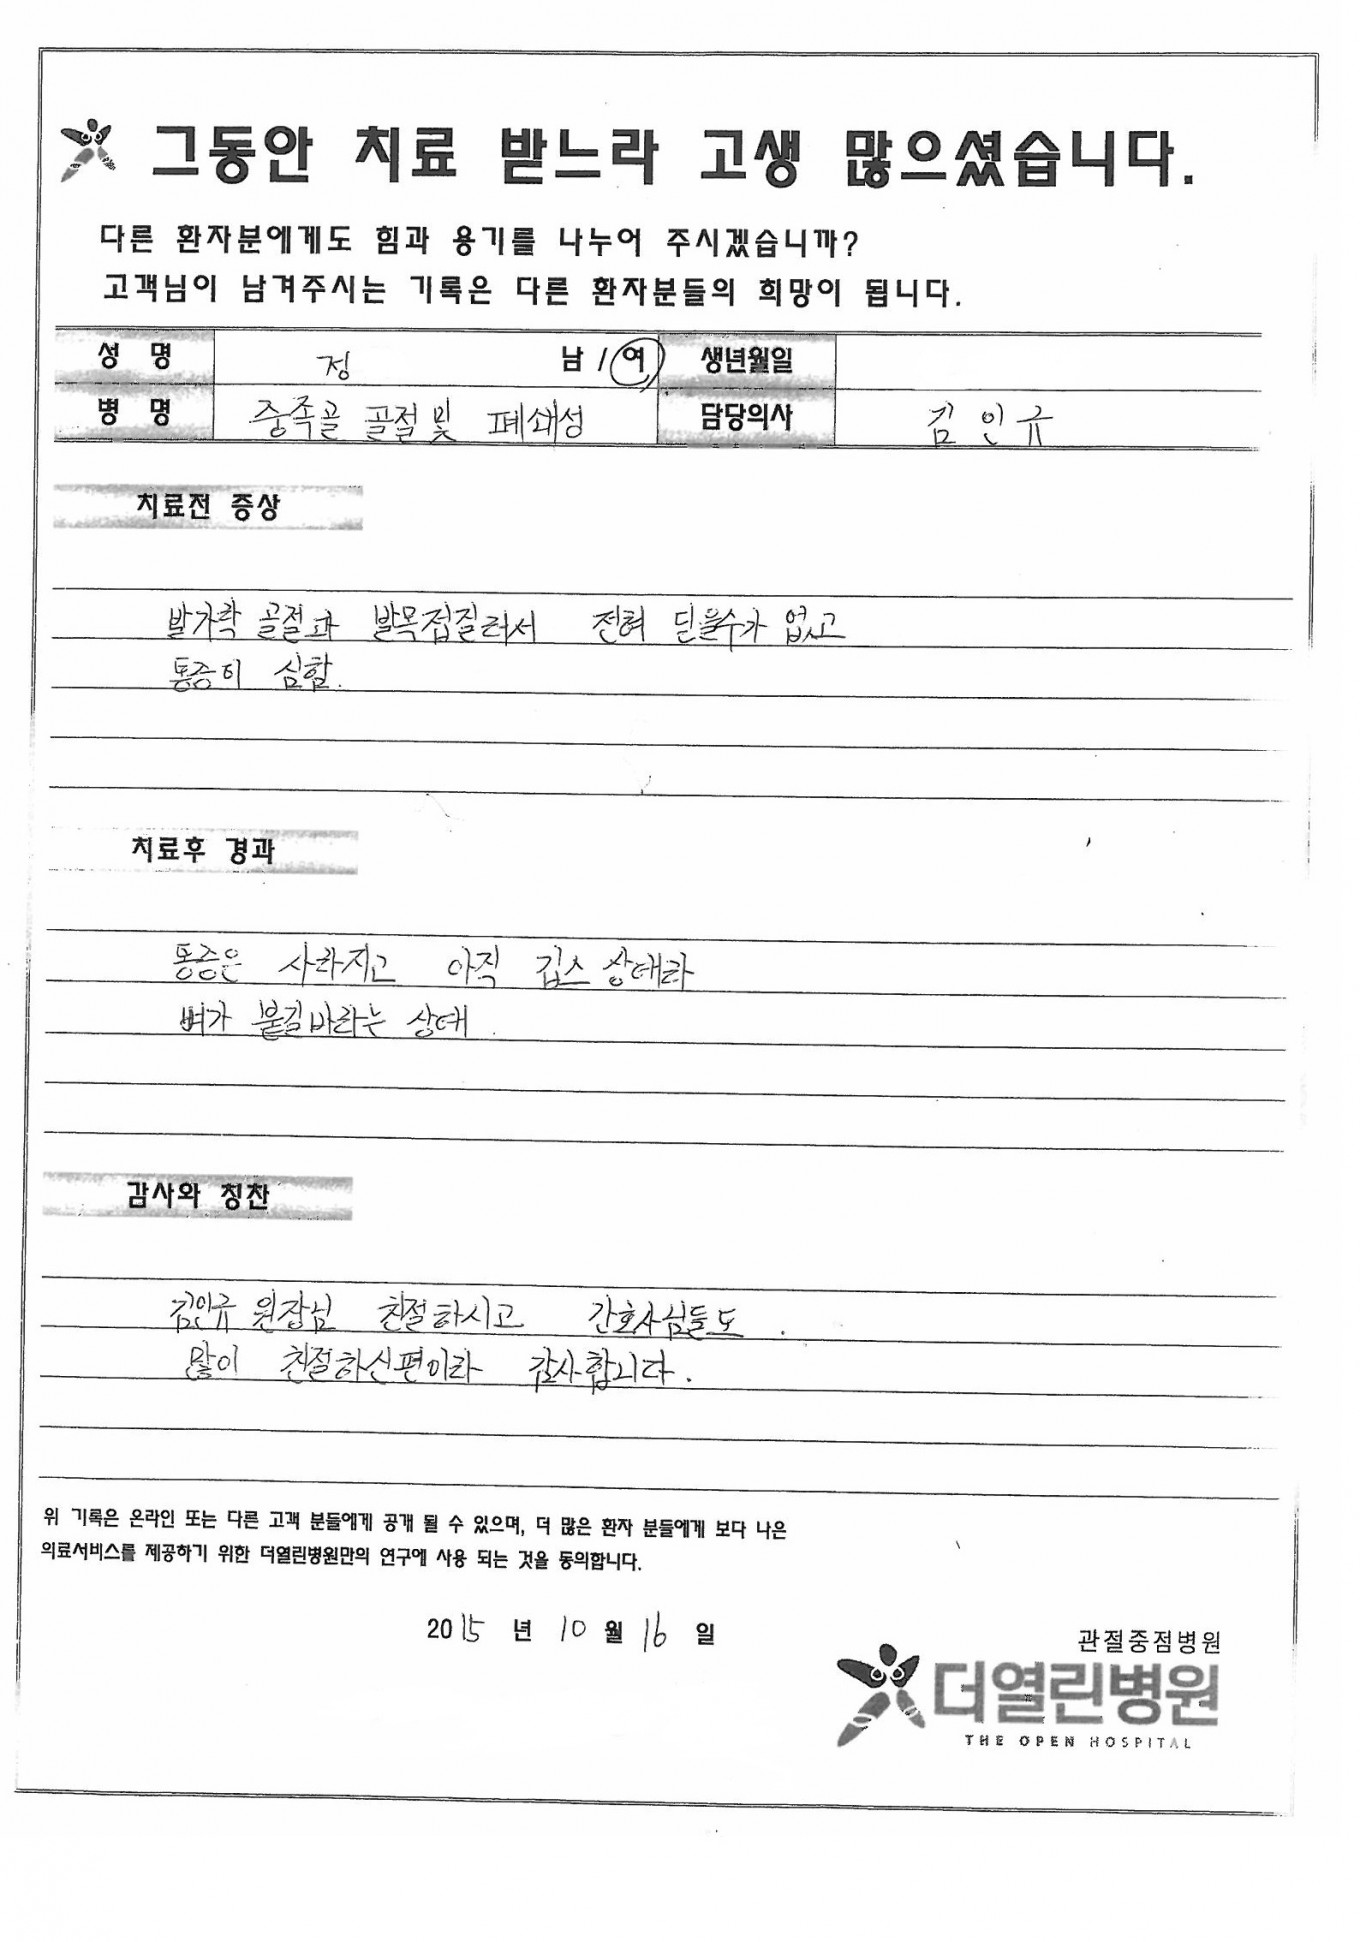 그동안 치료 받느라 고생 많으셨습니다.
다른 환자분에게도 힘과 용기를 나누어 주시겠습니까?
고객님이 남겨주시는 기록은 다른 환자분들의 희망이 됩니다.
성 명 정 남 / 여 생년월일
병 명 중족골 골절 및 폐쇄성 담당의사 김 인 규
치료전 증상
발가락 골절과 발목접질러서 전혀 딛을수가 없고
통증이 심함.
치료후 경과
통증은 사라지고 아직 깁스 상태라
뼈가 붙길바라는 상태.
감사와 칭찬
김인규 원장님 친절하시고 간호사님들도
많이 친절하신편이라 감사합니다.
위 기록은 온라인 또는 다른 고객 분들에게 공개 될 수 있으며, 더 많은 환자 분들에게 보다 나은
의료서비스를 제공하기 위한 더열린병원만의 연구에 사용 되는 것을 동의합니다.
2015 년 10 월 16 일
관절중점병원
더열린병원
THE OPEN HOSPITAL